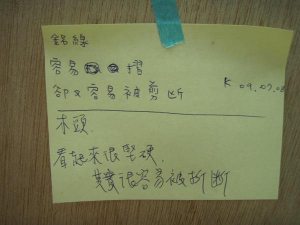 鋁線
容易 摺
卻又容易被剪断
K 09.07.08
木頭
看起來很堅硬
其實很容易被折断